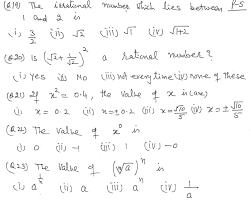 (Q.19) The irrational number which lies between P-5
1 and 2 is
(i) 3/2 (ii) √2 (iii) √1 (iv) √1+2
(Q.20) Is (√2 + 1/√2)² a rational number?
(i) Yes (ii) No (iii) not every time (iv) none of these
(Q.21) If x² = 0.4, the value of x is (are)
(i) x = 0.2 (ii) x = ±0.2 (iii) x = √10/5 (iv) x = ±√10/5
(Q.22) The value of x⁰ is
(i) 0 (ii) -1 (iii) 1 (iv) -0
(Q.23 The value of (ⁿ√a)ⁿ is
(ii) a (iii) aⁿ (iv) 1/a